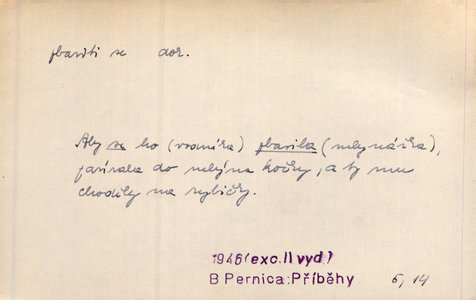 zbaviti se dok.
Aby se ho (vodníka) zbavila (mlynářka),
zavírala do mlýna kočky, a ty mu
chodily na rybičky.
1946 (exc. II vyd.)
B Pernica: Příběhy 5, 14